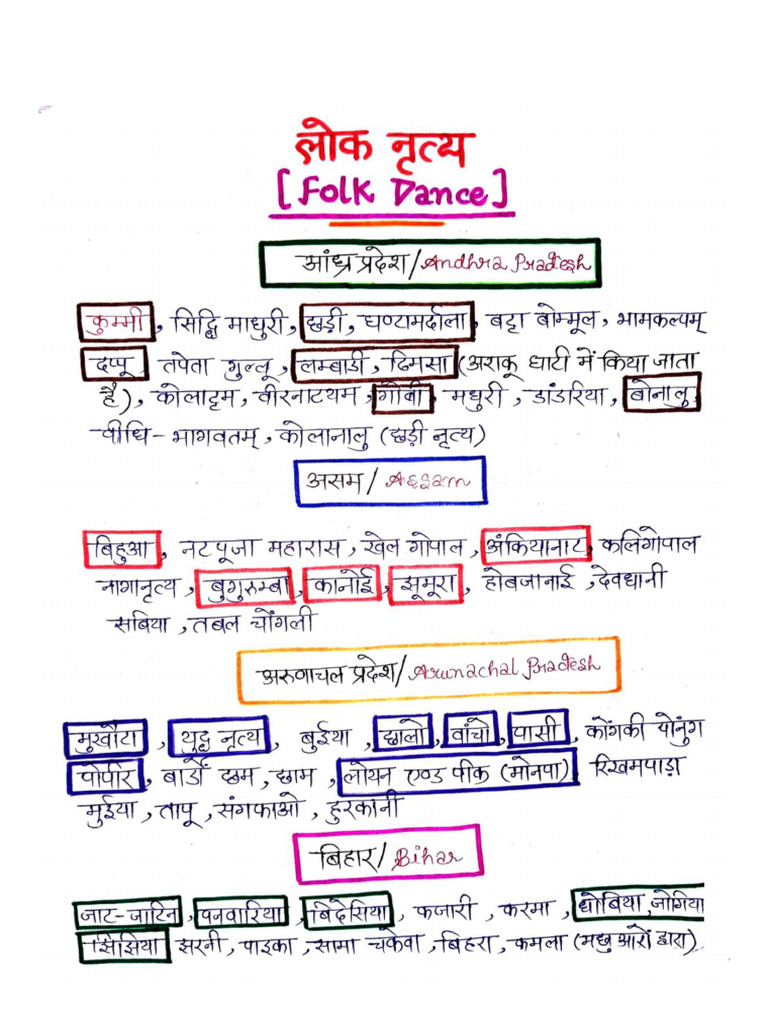 लोक नृत्य
[Folk Dance]
आंध्र प्रदेश/Andhra Pradesh
कुम्मी, सिद्धि माधुरी, छड़ी, घण्टामर्दाला, बट्टा बोम्मूल, भामकल्पम्
दप्पू, तपेता गुल्लू, लम्बाडी, ढिमसा (अराकू घाटी में किया जाता
है), कोलाट्टम, वीरनाटयम, गोबी, मधुरी, डांडरिया, बोनालु
वीधि-भागवतम्, कोलानालु (छड़ी नृत्य)
असम/Assam
बिहुआ, नटपूजा महारास, खेल गोपाल, अंकियानाट, कलिगोपाल
नागानृत्य, बुगुरुम्बा, कानोई, झूमूरा, होबजानाई, देवधानी
सबिया, तबल चोंगली
अरुणाचल प्रदेश/Arunachal Pradesh
मुखौटा, युद्ध नृत्य, बुईया, छालो, वांचो, पासी, कोंगकी पोनुंग
पोपीर, बार्डो छम, छाम, लोयन एण्ड पीक (मोनपा) रिखमपाड़ा
मुईया, तापू, संगफाओ, हुरकानी
बिहार/Bihar
जाट-जाटिन, पनवारिया, बिदेसिया, कजारी, करमा, धोबिया, जोगिया
झिझिया झरनी, पाइका, सामा चकेवा, बिहरा, कमला (मछुआरों द्वारा)